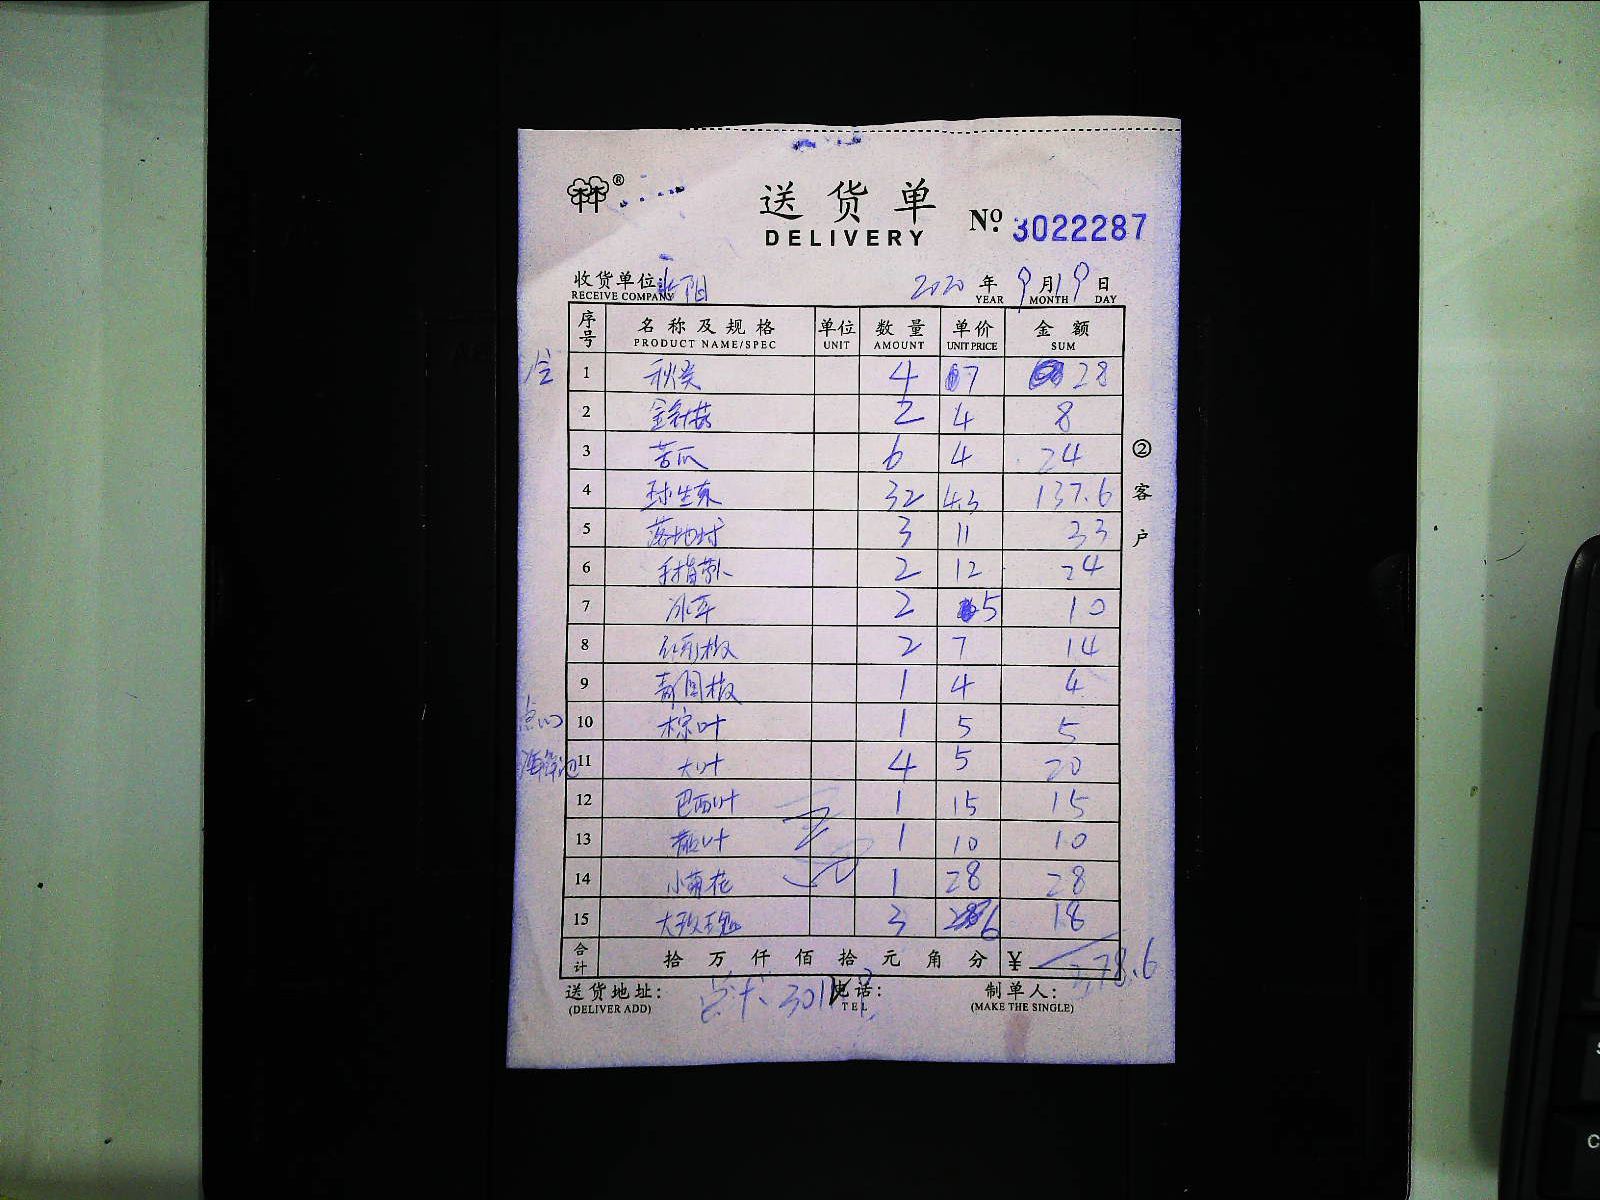 ®
送货单
DELIVERY
№ 3022287
收货单位: 阳 2020年9月19日
RECEIVE COMPANY YEAR MONTH DAY
序号 名称及规格 单位 数量 单价 金额
PRODUCT NAME/SPEC UNIT AMOUNT UNIT PRICE SUM
1 秋葵 4 7 28
2 金针菇 2 4 8
3 苦瓜 6 4 24
4 球生菜 32 4.3 137.6
5 3 11 33
6 手指萝卜 2 12 24
7 冰草 2 5 10
8 红彩椒 2 7 14
9 青圆椒 1 4 4
10 棕叶 1 5 5
11 大叶 4 5 20
12 巴西叶 1 15 15
13 散叶 1 10 10
14 小菊花 1 28 28
15 大玫瑰 3 6 18
合计 拾万仟佰拾元角分 ¥ 378.6
送货地址: 电话: 制单人:
(DELIVER ADD) TEL (MAKE THE SINGLE)
②客户